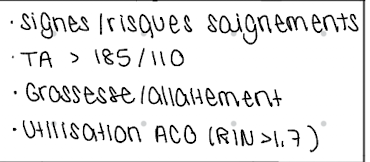 · signes/risques saignements
· TA > 185/110
· Grossesse/allaitement
· Utilisation ACO (RIN >1,7)